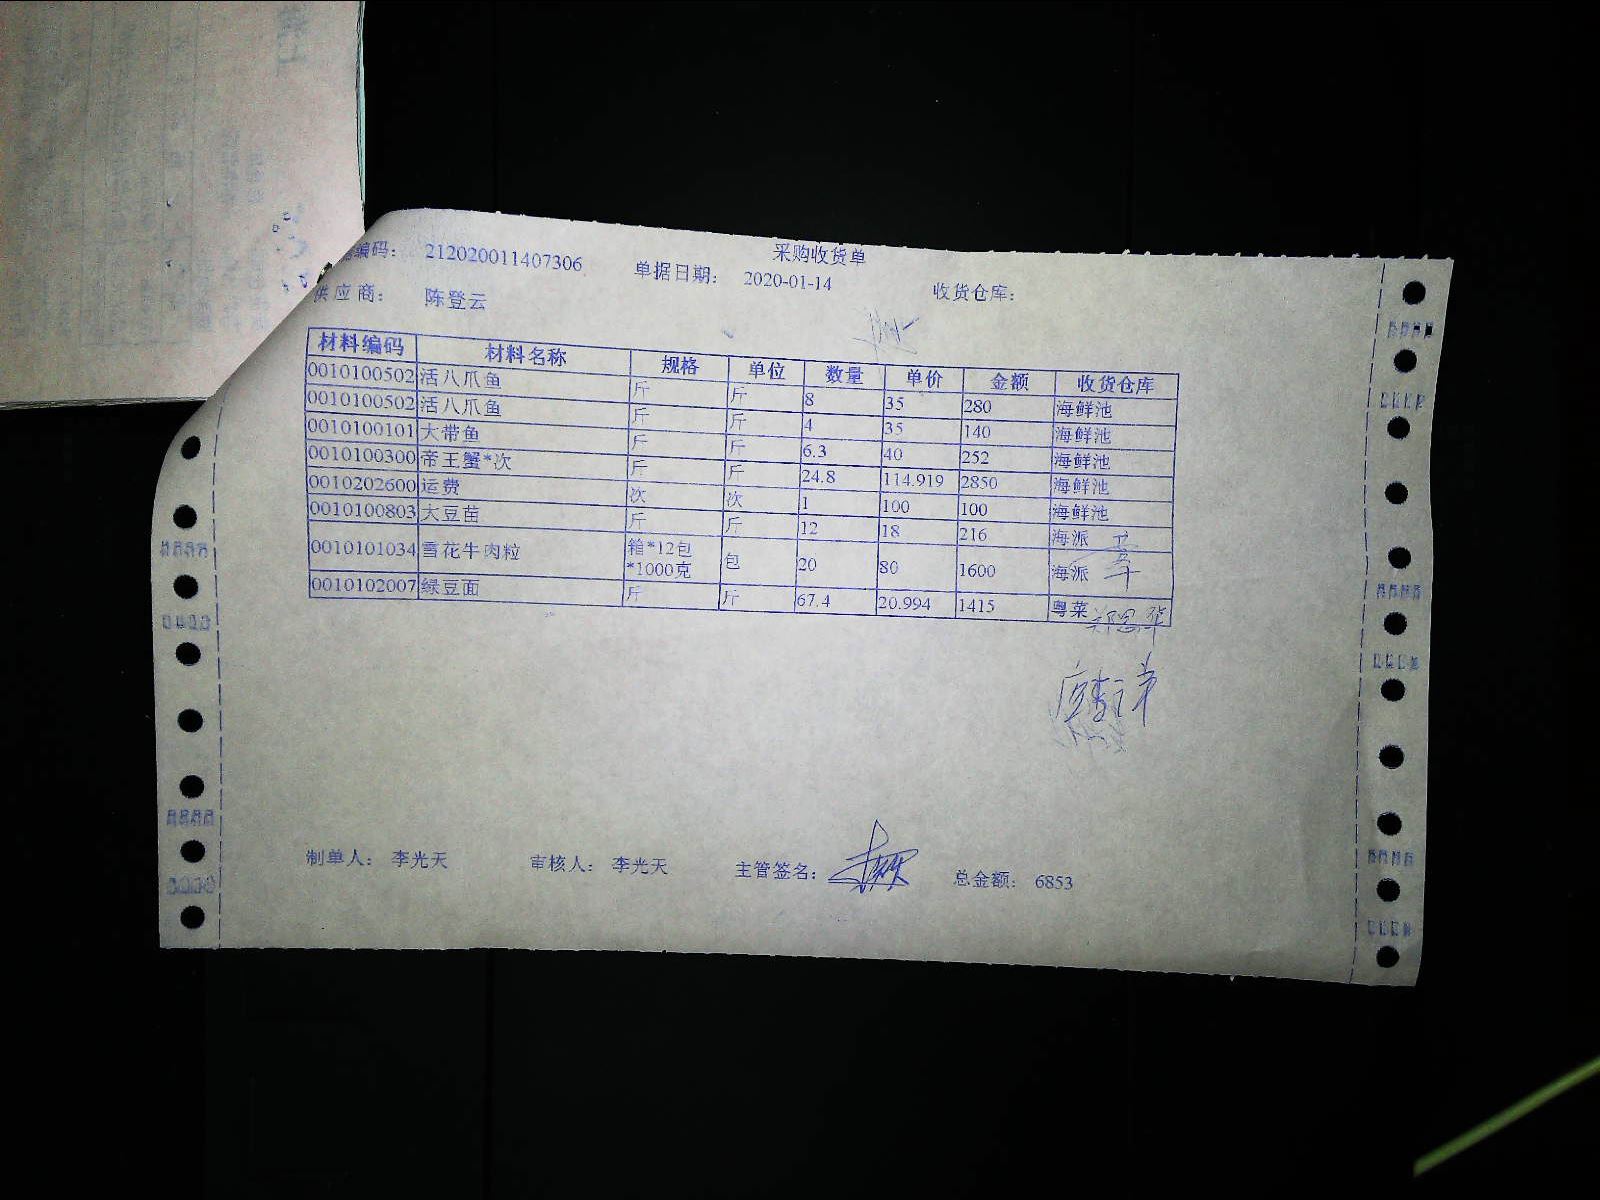 采购收货单
编码： 212020011407306 单据日期： 2020-01-14 收货仓库：
供应商： 陈登云
材料编码 材料名称 规格 单位 数量 单价 金额 收货仓库
0010100502 活八爪鱼 斤 斤 8 35 280 海鲜池
0010100502 活八爪鱼 斤 斤 4 35 140 海鲜池
0010100101 大带鱼 斤 斤 6.3 40 252 海鲜池
0010100300 帝王蟹*次 斤 斤 24.8 114.919 2850 海鲜池
0010202600 运费 次 次 1 100 100 海鲜池
0010100803 大豆苗 斤 斤 12 18 216 海派
0010101034 雪花牛肉粒 箱*12包*1000克 包 20 80 1600 海派
0010102007 绿豆面 斤 斤 67.4 20.994 1415 粤菜
制单人： 李光天 审核人： 李光天 主管签名： 总金额： 6853